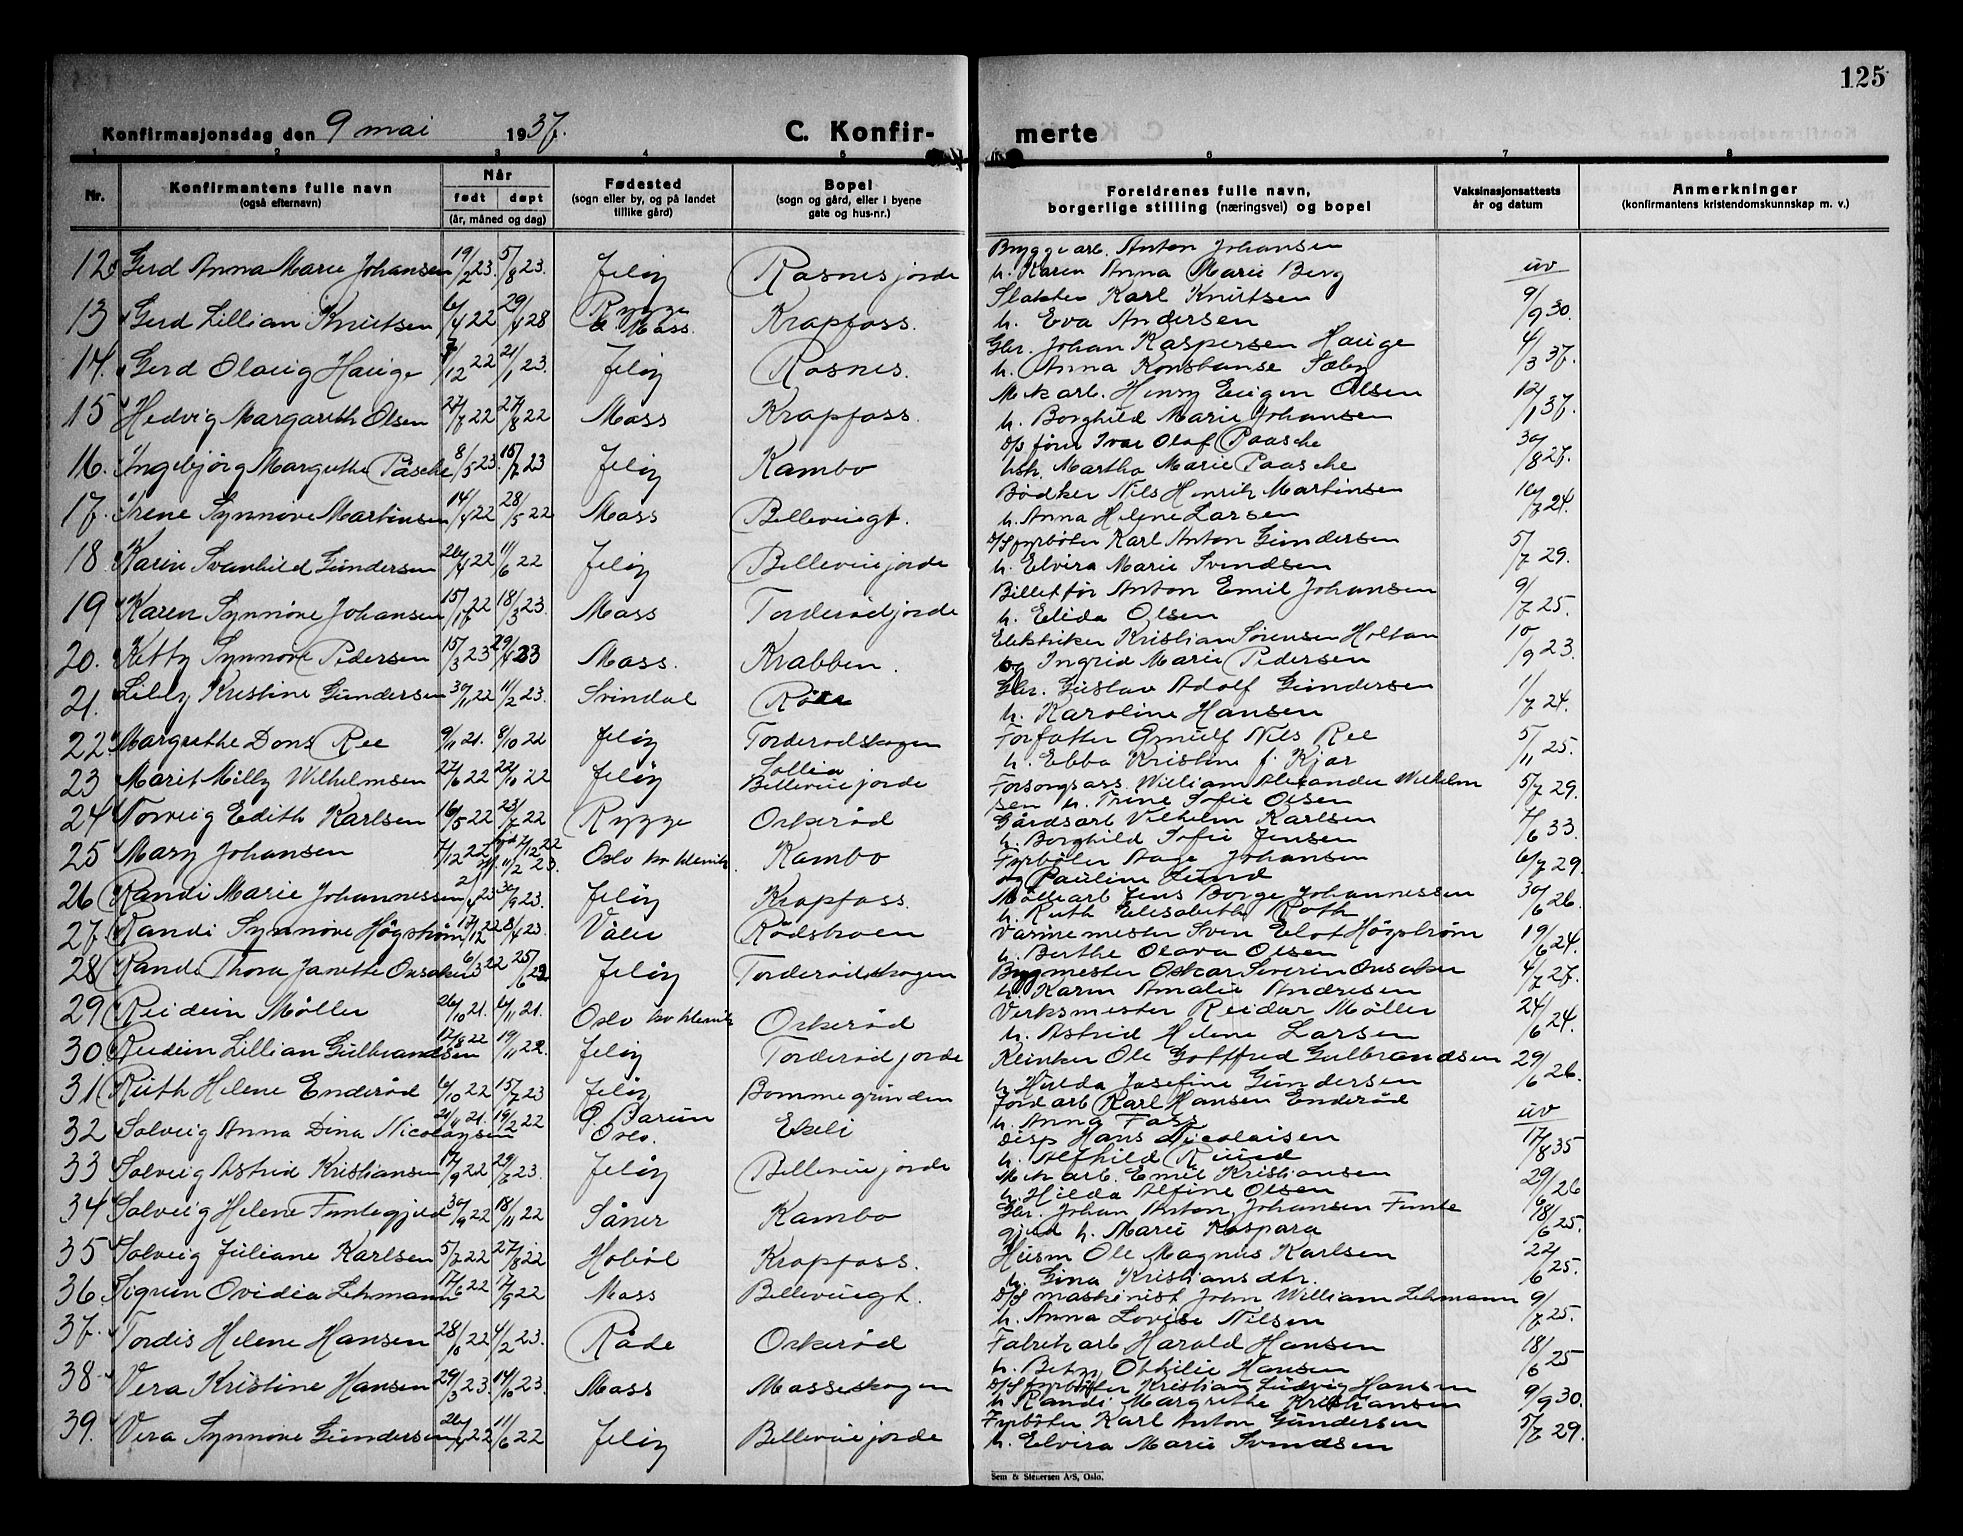 125
Konfirmasjonsdag den 9 mai 1937.
C. Konfir-
merte
1 2 3 4 5 6 7 8
Nr.
Konfirmantens fulle navn
(også efternavn)
Når
født døpt
(år, måned og dag)
Fødested
(sogn eller by, og på landet
tillike gård)
Bopel
(sogn og gård, eller i byene
gate og hus-nr.)
Foreldrenes fulle navn,
borgerlige stilling (næringsvei) og bopel
Vaksinasjonsattests
år og datum
Anmerkninger
(konfirmantens kristendomskunnskap m. v.)
12 Gerd Anna Marie Johansen 19/2 23. 5/8 23. Jeløy Rosnesjorde Bryggearb. Anton Johansen
h. Karen Anna Marie Berg uv
13 Gerd Lillian Knutsen 6/4 22 29/4 28 Rygge Moss. Krapfoss. Slakter Karl Knutsen 9/9 30.
h. Eva Andersen
14. Gerd Olaug Hauge /12 22 21/1 23. Jeløy Rosnes. Gbr. Johan Kaspersen Hauge 4/3 37.
h. Anna Konstanse Sæby
15 Hedvig Margareth Olsen 27/7 22 27/8 22 Moss Krapfoss. Mek arb. Henry Eugen Olsen 12/1 37.
h. Borghild Marie Johansen
16. Ingebjørg Margrethe Påsche 8/5 23. 15/7 23 Jeløy Kambo D/s fører Ivar Olaf Paasche 30/8 27.
h. Martha Marie Paasche
17. Irene Synnøve Martinsen 14/4 22 28/5 22 Moss Bellevuegt. Bødker Nils Henrik Martinsen 16/7 24.
h. Anna Helene Larsen
18 Karin Svanhild Gundersen 26/4 22 11/6 22 Jeløy Bellevuejorde D/S fyrbøter Karl Anton Gundersen 5/7 29.
h. Elvira Marie Svendsen
19 Karen Synnøve Johansen 15/12 22 18/3 23. Moss Torderødjorde Billetfør Anton Emil Johansen 9/7 25.
h. Elida Olsen
20. Kitty Synnøve Pedersen 15/3 23 29/4 23 Moss. Krabben. Elektriker Kristian Sørensen Holtan 10/9 23.
og Ingrid Marie Pedersen
21. Lilly Kristine Gundersen 30/11 22 11/2 23. Svindal Gbr. Gustav Adolf Gundersen 1/7 24.
h. Karoline Hansen
22. Margrethe Dons Ree 9/11 21. 8/10 22 Jeløy Torderødskogen Forfatter Nils Ree 5/11 25.
h. Ebba Kristine f. Kjær
23 Marit Milly Wilhelmsen 27/6 22 22/10 22 Jeløy Sollia Bellevuejorde Forsorgsass. William Alexander Wilhelm 5/7 29.
sen h. Trine Sofie Olsen
24 Torveig Edith Karlsen 16/5 22 23/7 22 Rygge Orkerød Gårdsarb Vilhelm Karlsen 7/6 33.
h. Borghild Sofie Jensen
25 Mary Johansen 7/12 22 11/2 23. Oslo kv klinik. Kambo Fyrbøter Aage Johansen 6/7 29.
og Pauline Lund
26 Randi Marie Johannessen 2/4 23 30/9 23. Jeløy Krapfoss. Møllearb Jens Borge Johannessen 30/6 26.
h. Ruth Elisabeth Roth
27. Randi Synnøve Høgstrøm 17/12 22 8/4 23. Våler Rødsbroen Varmemester Sven Elof Høgstrøm 19/6 24.
h. Berthe Olava Olsen
28 Randi Thora Janette Onsaker 6/3 22 25/6 22 Jeløy Torderødskogen Bygmester Oskar Severin Onsaker 4/7 27.
h. Karen Amalie Andresen
29 Reidun Møller 26/10 21. 6/11 21. Oslo kv klinik Orkerød Verksmester Reidar Møller 24/6 24.
h. Astrid Helene Larsen
30. Reidun Lillian Gulbrandsen 17/8 22 19/11 22. Jeløy Torderødjorde Kleinker Ole Gotfred Gulbrandsen 29/6 26.
h. Hilda Josefine Gundersen
31 Ruth Helene Enderød 6/10 22 15/7 23 Jeløy Bommegrinden Jordarb Karl Hansen Enderød uv
h. Anna Foss
32 Solveig Anna Dina Nicolaysen 21/11 21. 19/2 22 Ø. Bærum Oslo. Ekeli Disp Hans Nicolaisen 17/8 35
h. Alfhild Ruud
33 Solveig Astrid Kristiansen 17/9 22 29/7 23. Jeløy Bellevuejorde Mek arb. Emil Kristiansen 29/6 26
h. Hilda Alfine Olsen
34 Solveig Helene Funtegjeld 30/9 22 18/11 22 Såner Kambo Gbr. Johan Anton Johansen Funte 18/6 25.
gjeld h. Marie Kaspara
35 Solveig Juliane Karlsen 5/7 22 27/8 22 Hobøl Krapfoss. Husm Ole Magnus Karlsen 22/6 25.
h. Gina Kristiansdtr.
36. Sigrun Ovidia Lehmann 17/6 22 17/9 22 Moss Bellevuegt. D/S maskinist John William Lehmann 9/7 25.
h. Anna Lovise Nilsen
37. Tordis Helene Hansen 28/10 22 4/2 23. Råde Orkerød Fabrikarb Harald Hansen 18/6 25
h. Betzy Othilie Hansen
38. Vera Kristine Hansen 29/3 23. 14/10 23. Moss Mosseskogen D/S fyrbøter Kristian Ludvig Hansen 9/9 30.
h Randi Margrethe Kristiansen
39. Vera Synnøve Gundersen 26/4 22 11/6 22 Jeløy Bellevuejorde Fyrbøter Karl Anton Gundersen 5/7 29.
h. Elvira Marie Svendsen
Sem & Stenersen A/S, Oslo.